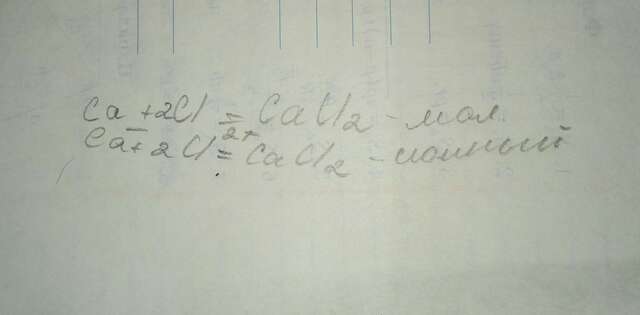 Ca + 2Cl = CaCl2 - мол
Ca + 2Cl = CaCl2 - ионный